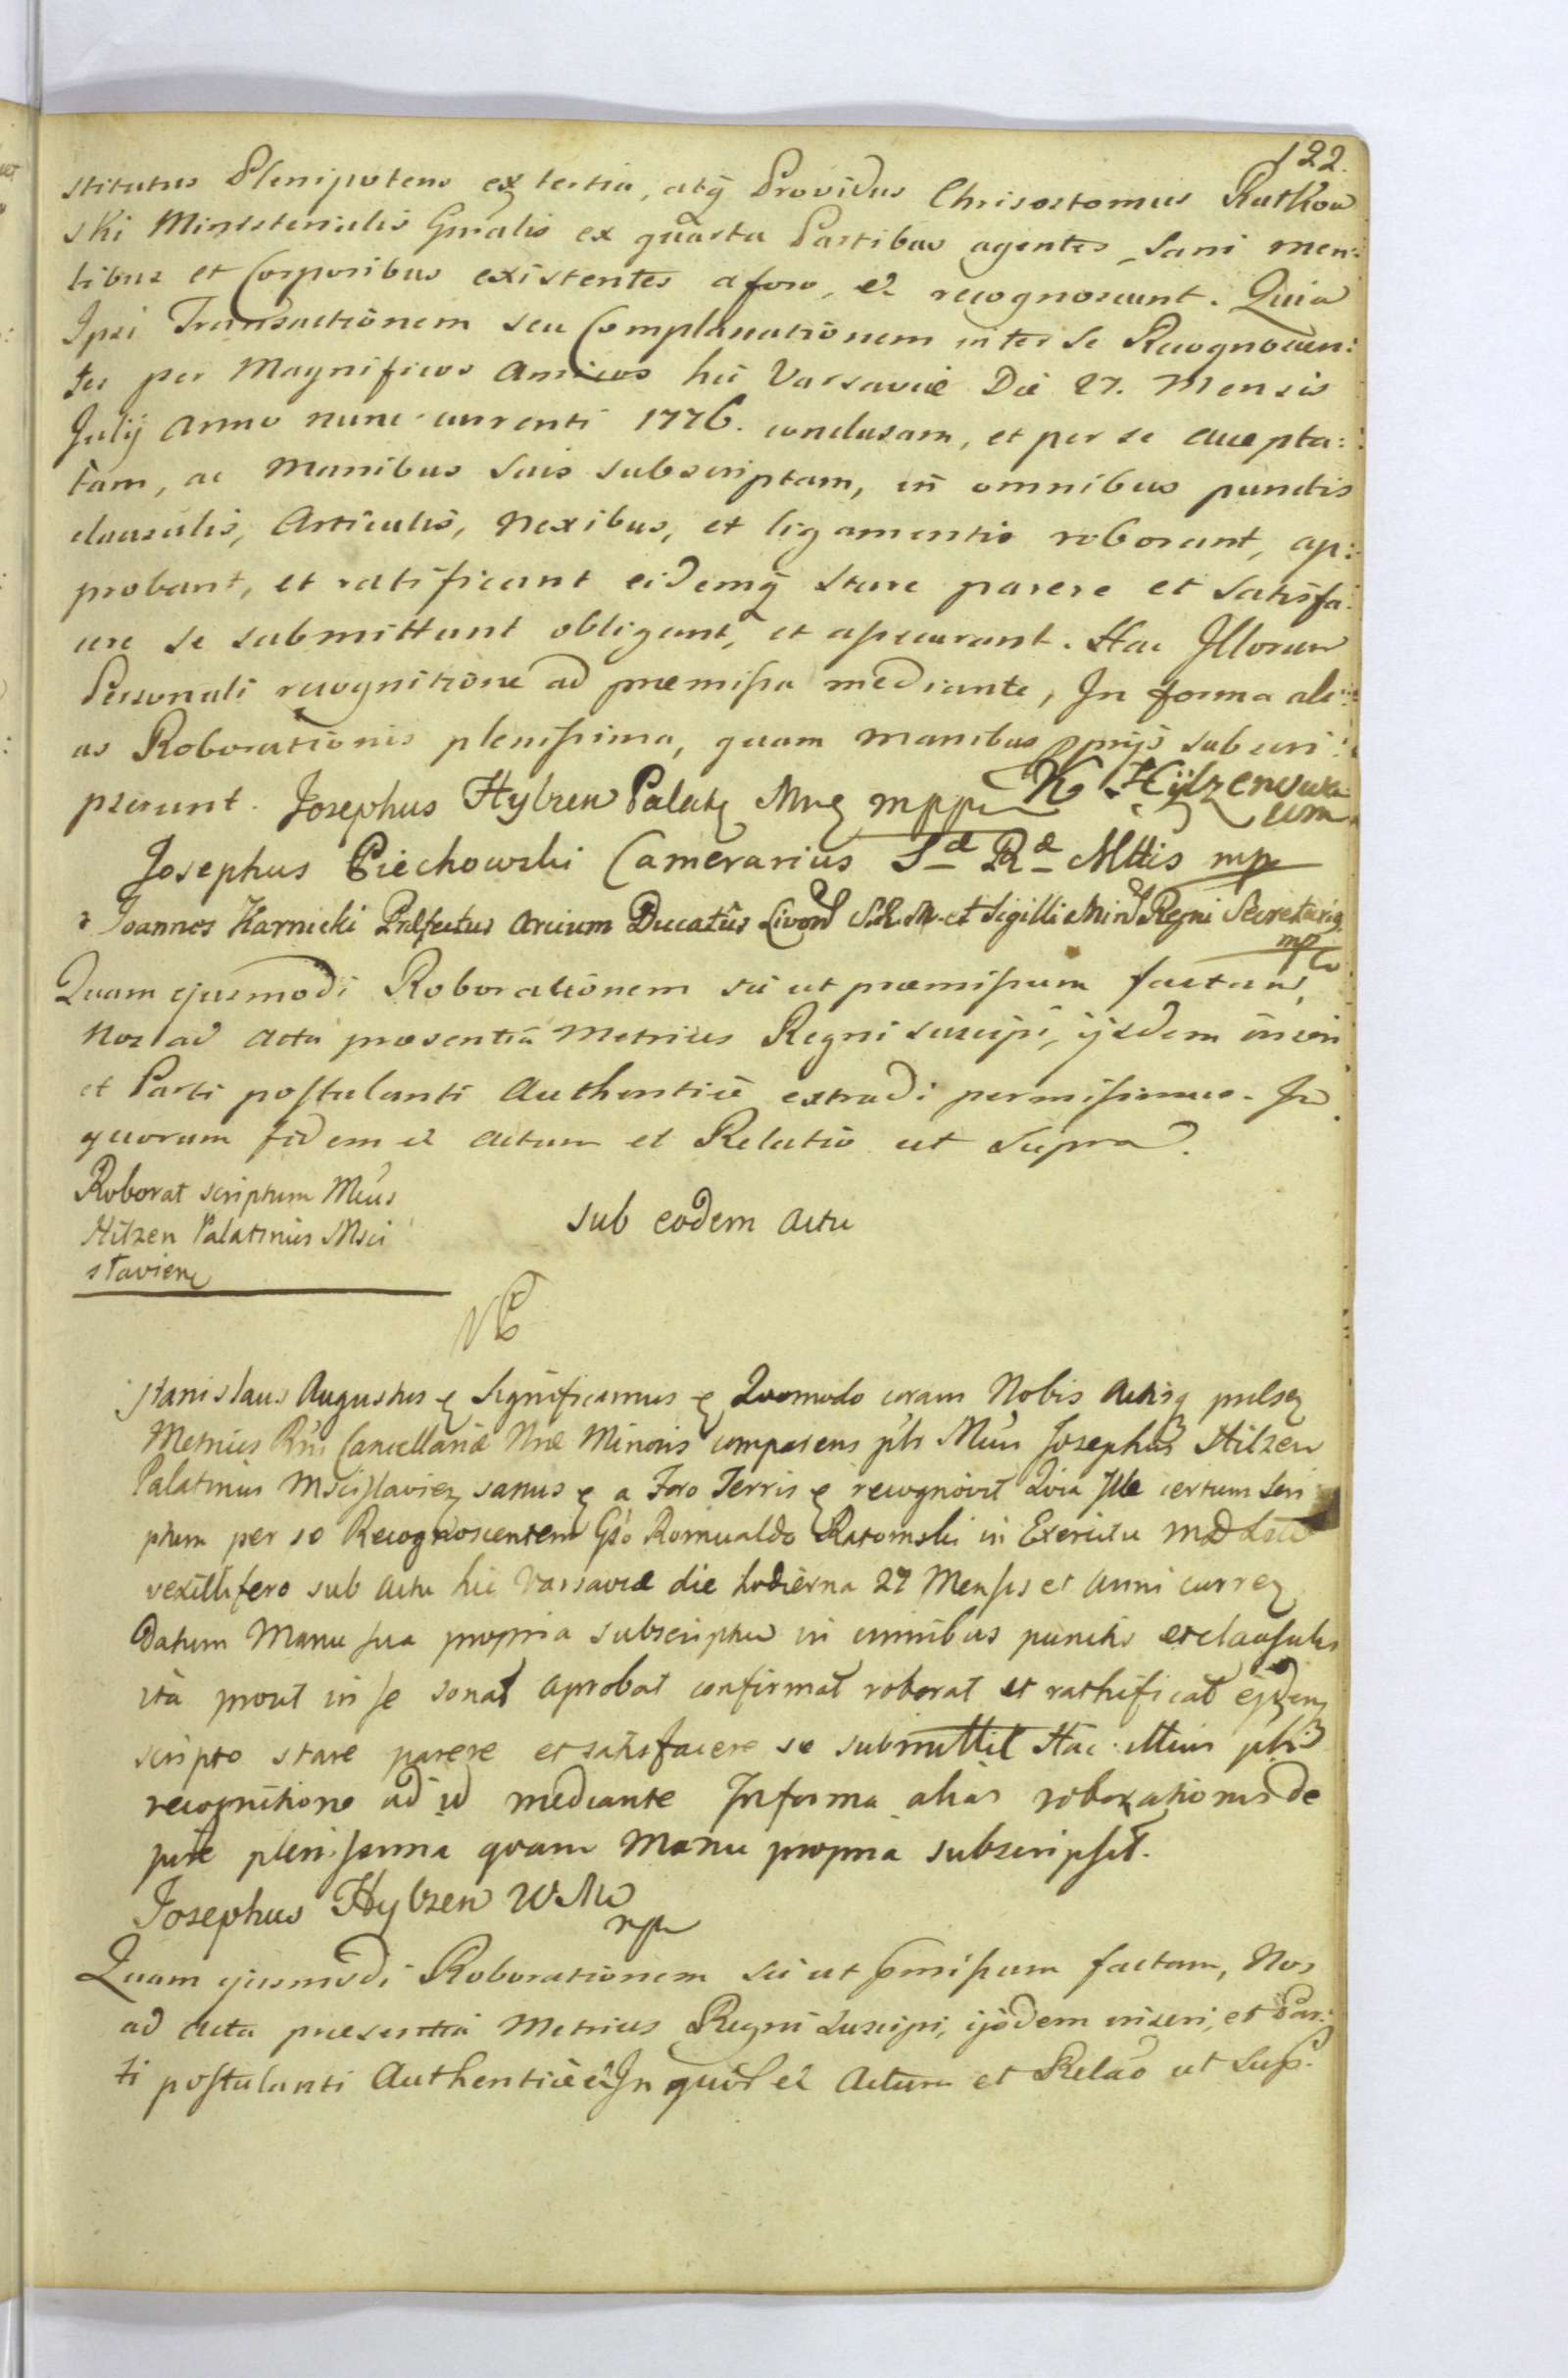 122.
stitutus Plenipotens ex tertia, atq Providus Chrisostomus Rutkow
ski Ministerialis Gnralis ex quarta Partibus agentes, Sani men:
tibus et Corporibus existentes a foro, et recognoscunt. Quia
Ipsi Transactionem seu Complanationem inter se Recognoscen:
tes per Magnificos Amicos hic Varsaviæ Die 27. Mensis
Julij Anno nunc currenti 1776. conclusam, et per se accepta:
tam, ac Manibus Suis subscriptam, in omnibus punctis
clausulis, Articulis, Nexibus, et ligamentis roborant, ap:
probant, et ratificant eidemq stare parere et satisfa:
cere se submittunt obligant, et assecurant. Hac Illorum
Personali recognitione ad præmissa mediante, In forma ali:
as Roborationis plenissima, quam manibus pprijs subscri:
pserunt. Josephus Hylzen Palatq Mnq mppr K Hÿlzenowa
Josephus Piechowski Camerarius S æ R æ Mttis mp
Joannes Karnicki Præfectus Arcium Ducatûs Livon S.R.M. et Sigilli Min Regni Secretariq
mp
Quam ejusmodi Roborationem sic ut præmissum factam,
Nos ad Acta præsentia Metrices Regni suscipi, ijsdem inseri
et Parti postulanti Authentice extradi permisimus. In
quorum fidem et Actum et Relatio ut supra.
Roborat scriptum Mcus
Hilzen Palatinus Msci
slavienq
Sub eodem Actu
Stanislaus Augustus Significamus Quomodo coram Nobis Actisq
Metrices Rni Cancellariæ Nræ Minoris comparens plr Mcus Josephus Hilzen
Palatinus Mscislavien sanus a Foro Terris recognovit Quia Ille certum Scri
ptum per se Recognoscentem Gso Romualdo Ratomski in Exercitu MD Litt
vexillifero sub actu hic Varsaviæ die hodierna 27 Mensis et anni curren
datum Manu sua propria subscriptum in omnibus punctis et clausulis
ita prout in se sonat aprobat confirmat roborat et rathificat ejdemq
scripto stare parere et satisfacere se submittit Hac illius
recognitione ad id mediante In forma alias roborationis de
jure plenissima quam Manu propria subscripsit.
Josephus Hylzen WM
mp
Quam ejusmodi Roborationem sic ut pmissum factam, Nos
ad Acta præsentia Metrices Regni suscipi, ijsdem inseri, et Par:
ti postulanti Authentice et In quor et Actum et Relao ut Sup.